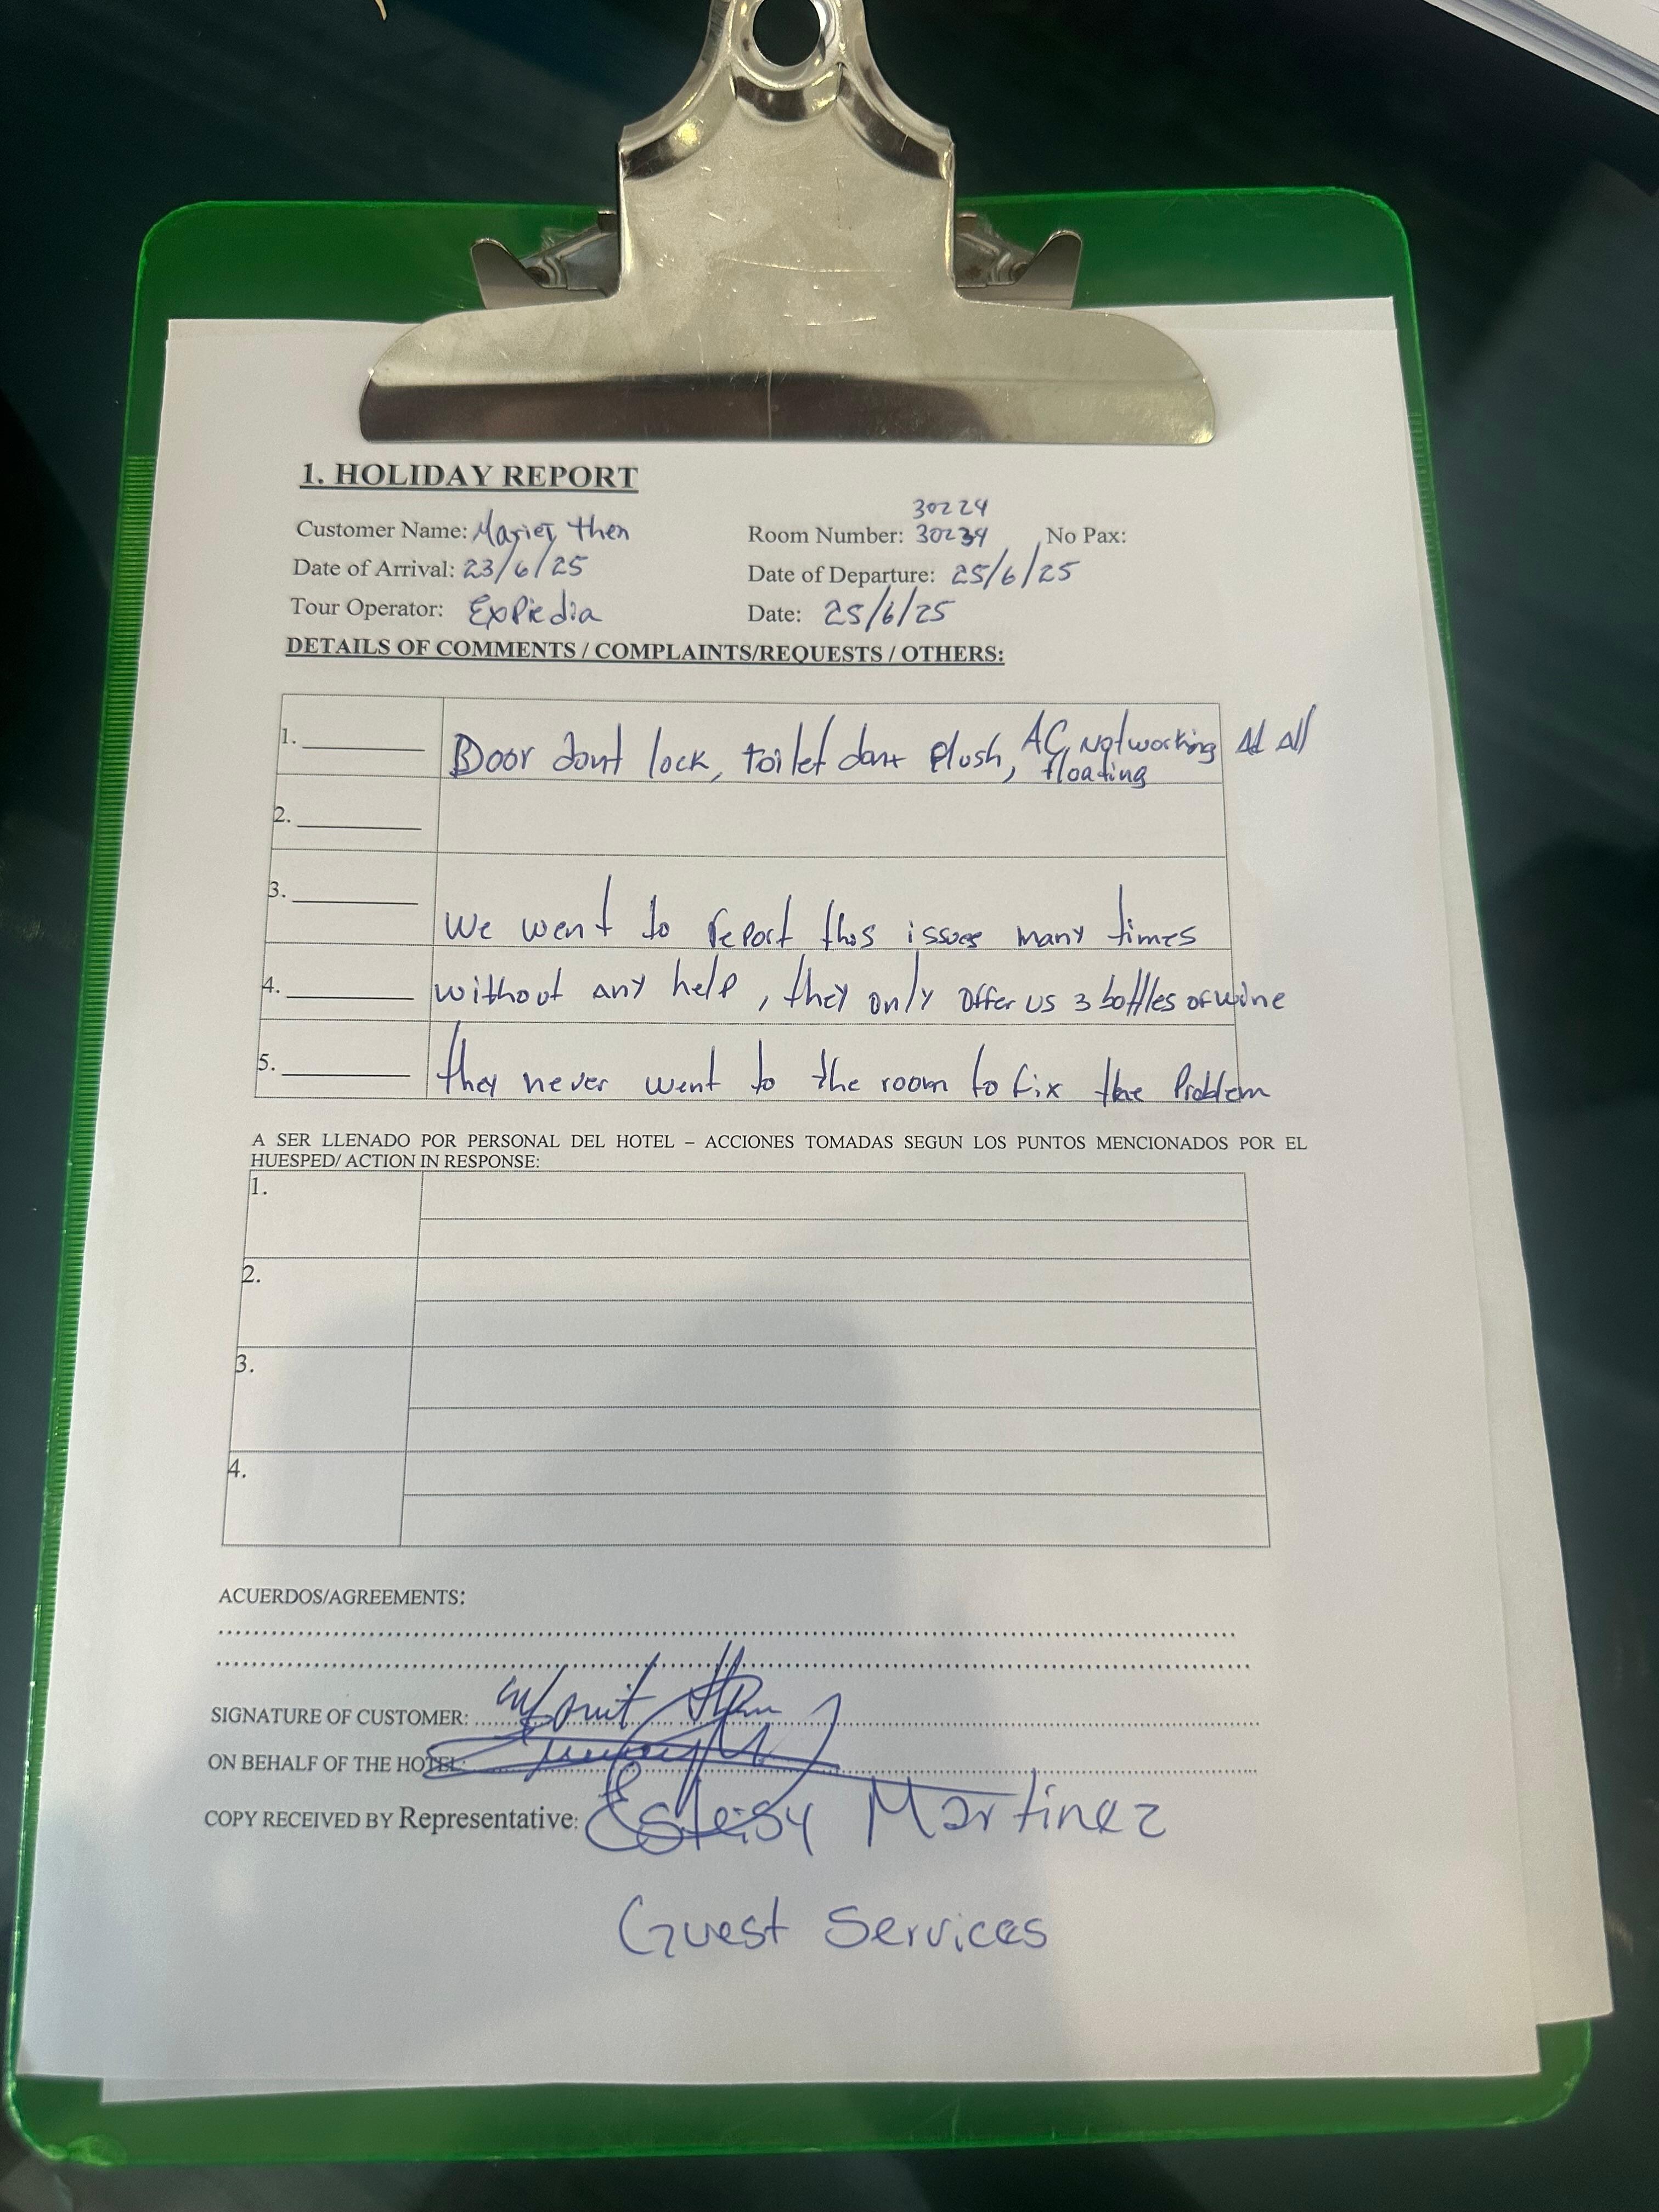 1. HOLIDAY REPORT
30224
Customer Name: Then Room Number: 30234 No Pax:
Date of Arrival: 23/6/25 Date of Departure: 25/6/25
Tour Operator: ExPiedia Date: 25/6/25
DETAILS OF COMMENTS / COMPLAINTS/REQUESTS / OTHERS:
1. Door dont lock, toilet dont flush, AC, Not working At All
floading
2.
3. We went to report this issues many times
4. without any help, they only offer us 3 bottles of wine
5. they never went to the room to fix the Problem
A SER LLENADO POR PERSONAL DEL HOTEL – ACCIONES TOMADAS SEGUN LOS PUNTOS MENCIONADOS POR EL
HUESPED/ ACTION IN RESPONSE:
1.
2.
3.
4.
ACUERDOS/AGREEMENTS:
SIGNATURE OF CUSTOMER:
ON BEHALF OF THE HOTEL:
COPY RECEIVED BY Representative: Esteisy Martinez
Guest Services